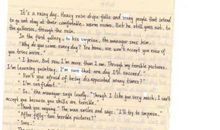 It's a rainy day. Heavy rain drops falls and many people that intend
to go out stay at their comfortable, warm rooms. But he still goes out to
the galleries, through the rain.
In the first gallery, to his surprise, the manager sees him.
"Why do you come every day? You know, we won't accept you even if
you tries more..."
"I know. But now I'm more than I am through my terrible pictures.
I'm learning painting, I'm sure that one day I'll succeed."
"Aren't you afraid of being disappointed many times?"
"I am. But I'd still..."
"Oh," the manager says loudly, "Though I like you very much, I can't
accept you because you skills are terrible."
"Thank you anyway." The man smiles and says, "I'll try to improve."
"After fifty-two terrible pictures?"
"Sure."